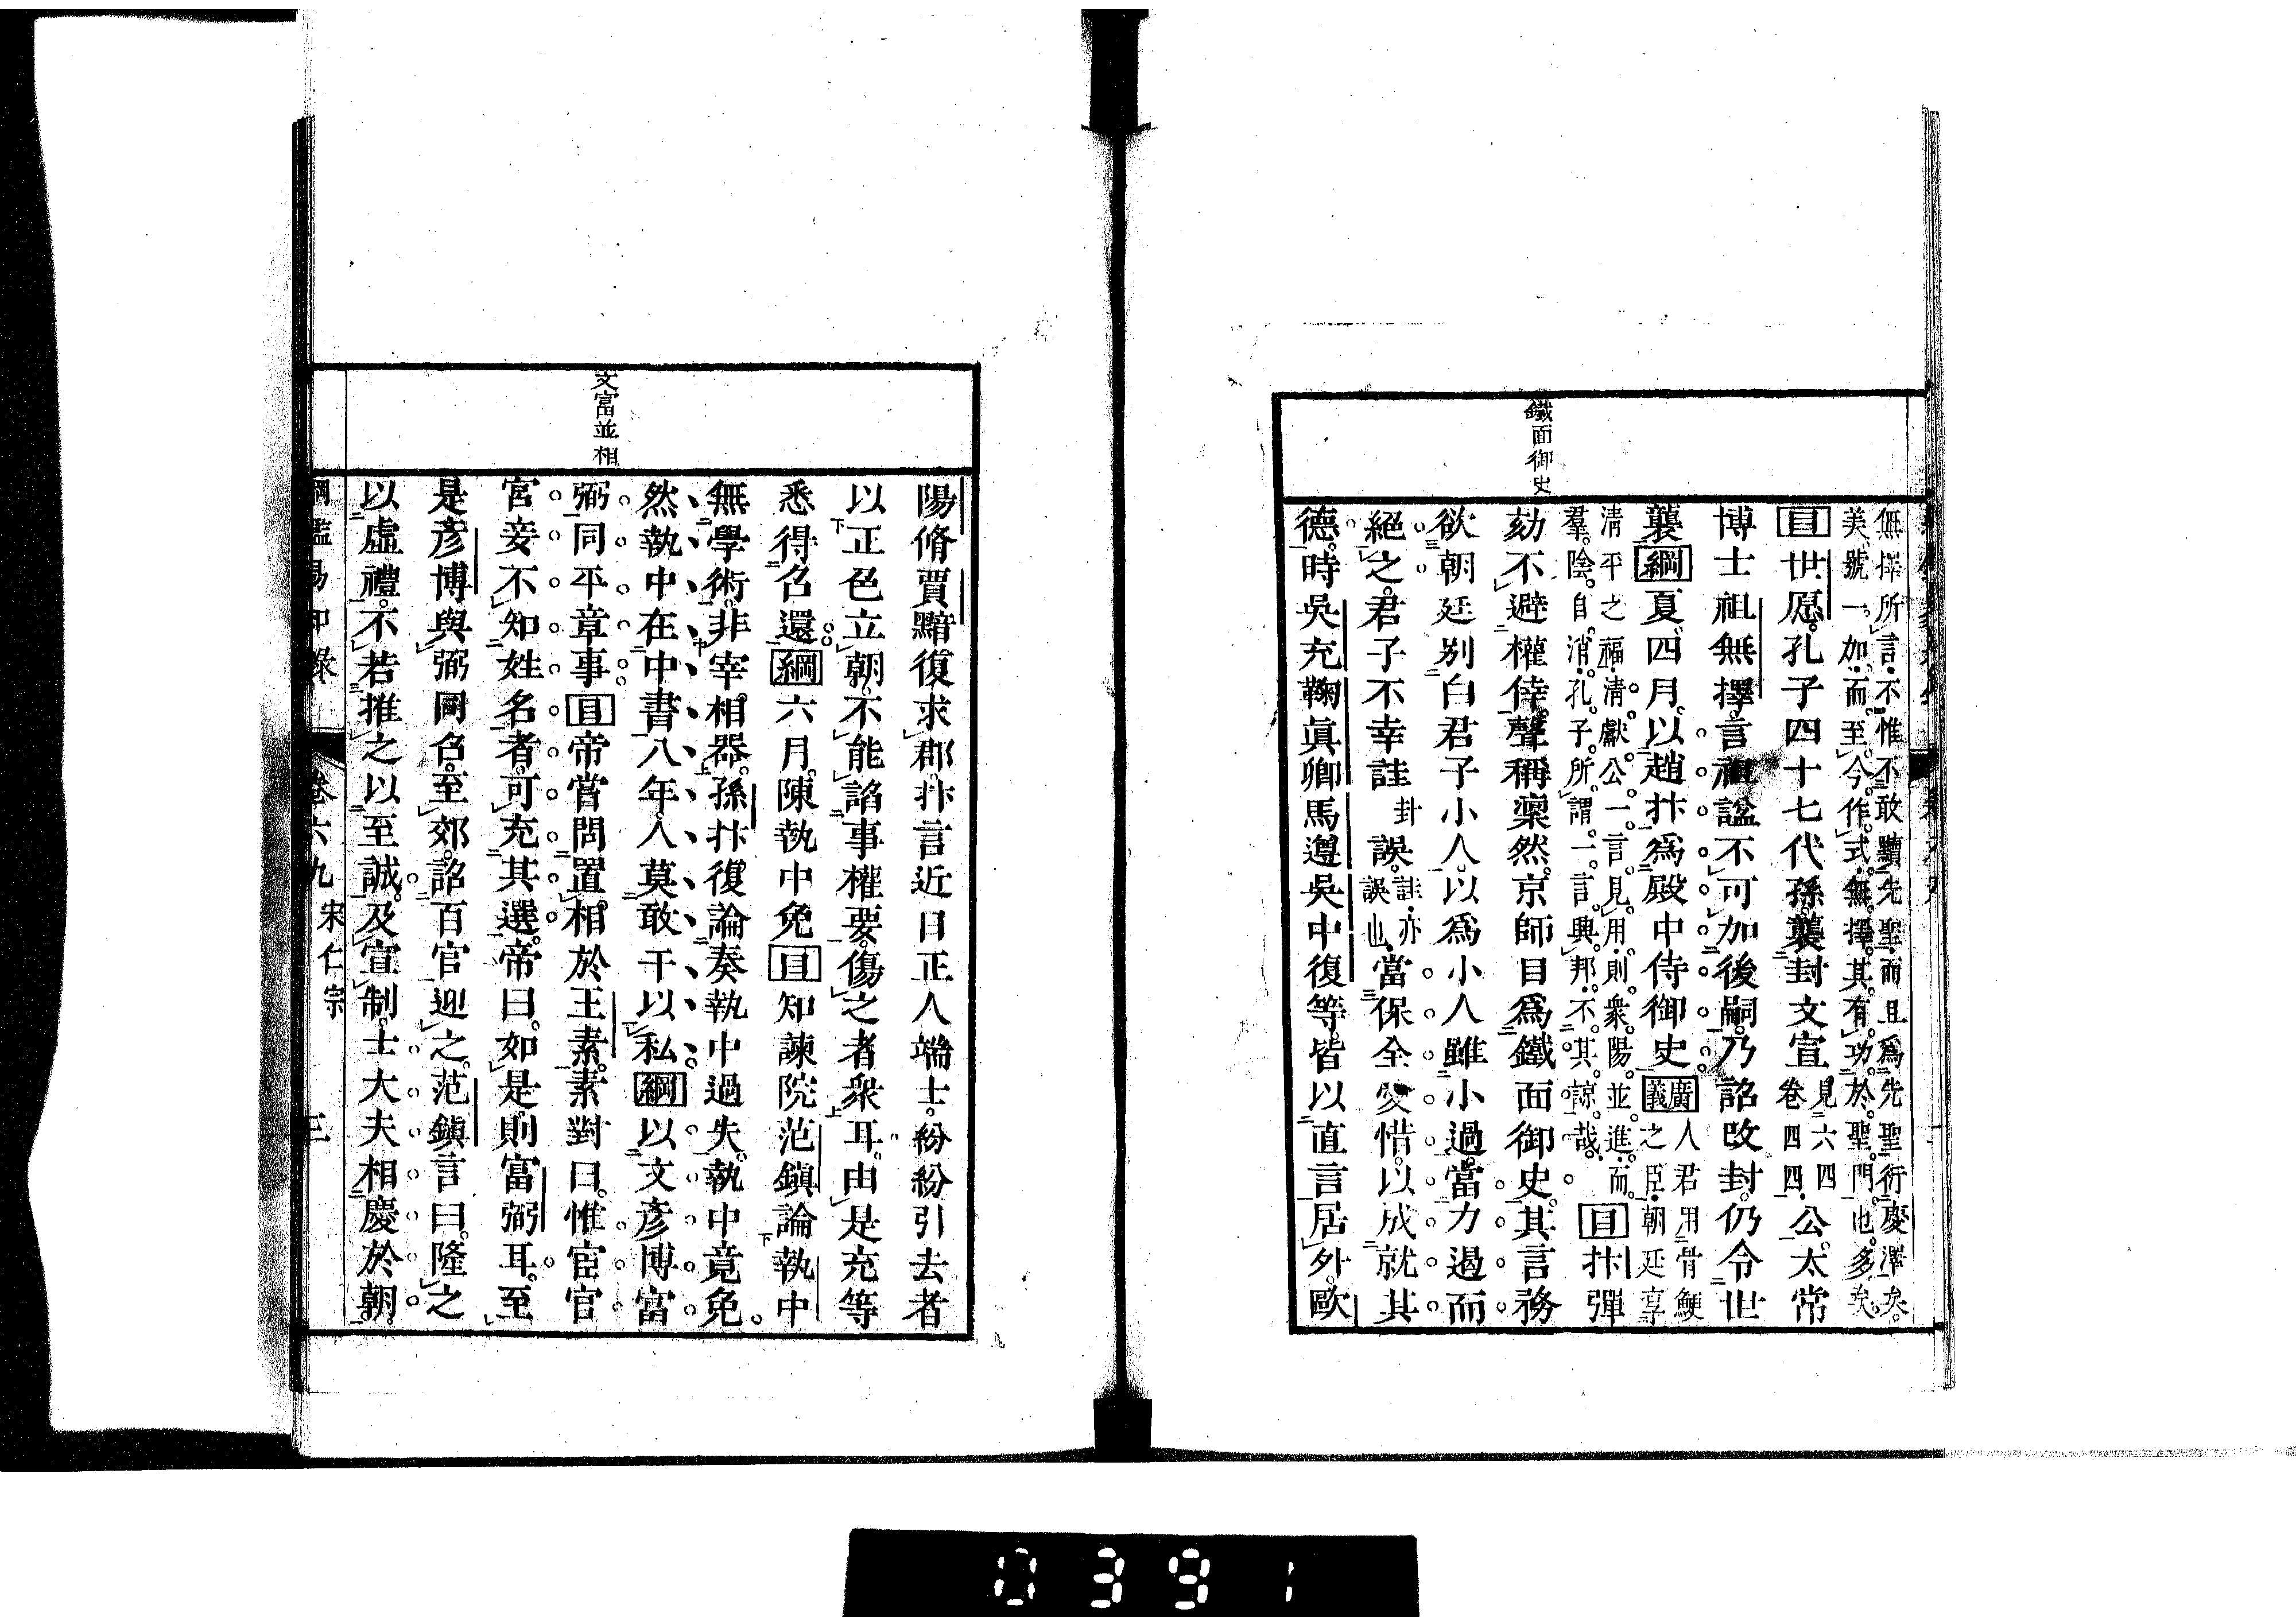 鐵面御史
無擇所言不惟不敢黷先聖而且爲先聖衍慶澤矣
美號一加而至今作式無擇其有功於聖門也多矣
目世愿孔子四十七代孫襲封文宣見六四卷四四公太常
博士祖無擇言祖諡不可加後嗣乃詔改封仍令世
襲綱夏四月以趙抃爲殿中侍御史廣義人君用骨鯁之臣朝廷享
清平之福清獻公一言見用則衆陽並進而
羣陰自消孔子所謂一言興邦不其諒哉目抃彈
劾不避權倖聲稱凜然京師目爲鐵面御史其言務
欲朝廷別白君子小人以爲小人雖小過當力遏而
絕之君子不幸詿卦誤詿亦誤也當保全愛惜以成就其
德時吳充鞠眞卿馬遵吳中復等皆以直言居外歐
文富並相
陽脩賈黯復求郡抃言近日正人端士紛紛引去者
以正色立朝不能諂事權要傷之者衆耳由是充等
悉得召還綱六月陳執中免目知諫院范鎭論執中
無學術非宰相器孫抃復論奏執中過失執中竟免
然執中在中書八年人莫敢干以私綱以文彥博富
弼同平章事目帝嘗問置相於王素素對曰惟宦官
宮妾不知姓名者可充其選帝曰如是則富弼耳至
是彥博與弼同召至郊詔百官迎之范鎭言曰隆之
以虛禮不若推之以至誠及宣制士大夫相慶於朝
綱鑑易知錄 卷六九 宋仁宗 三
0391